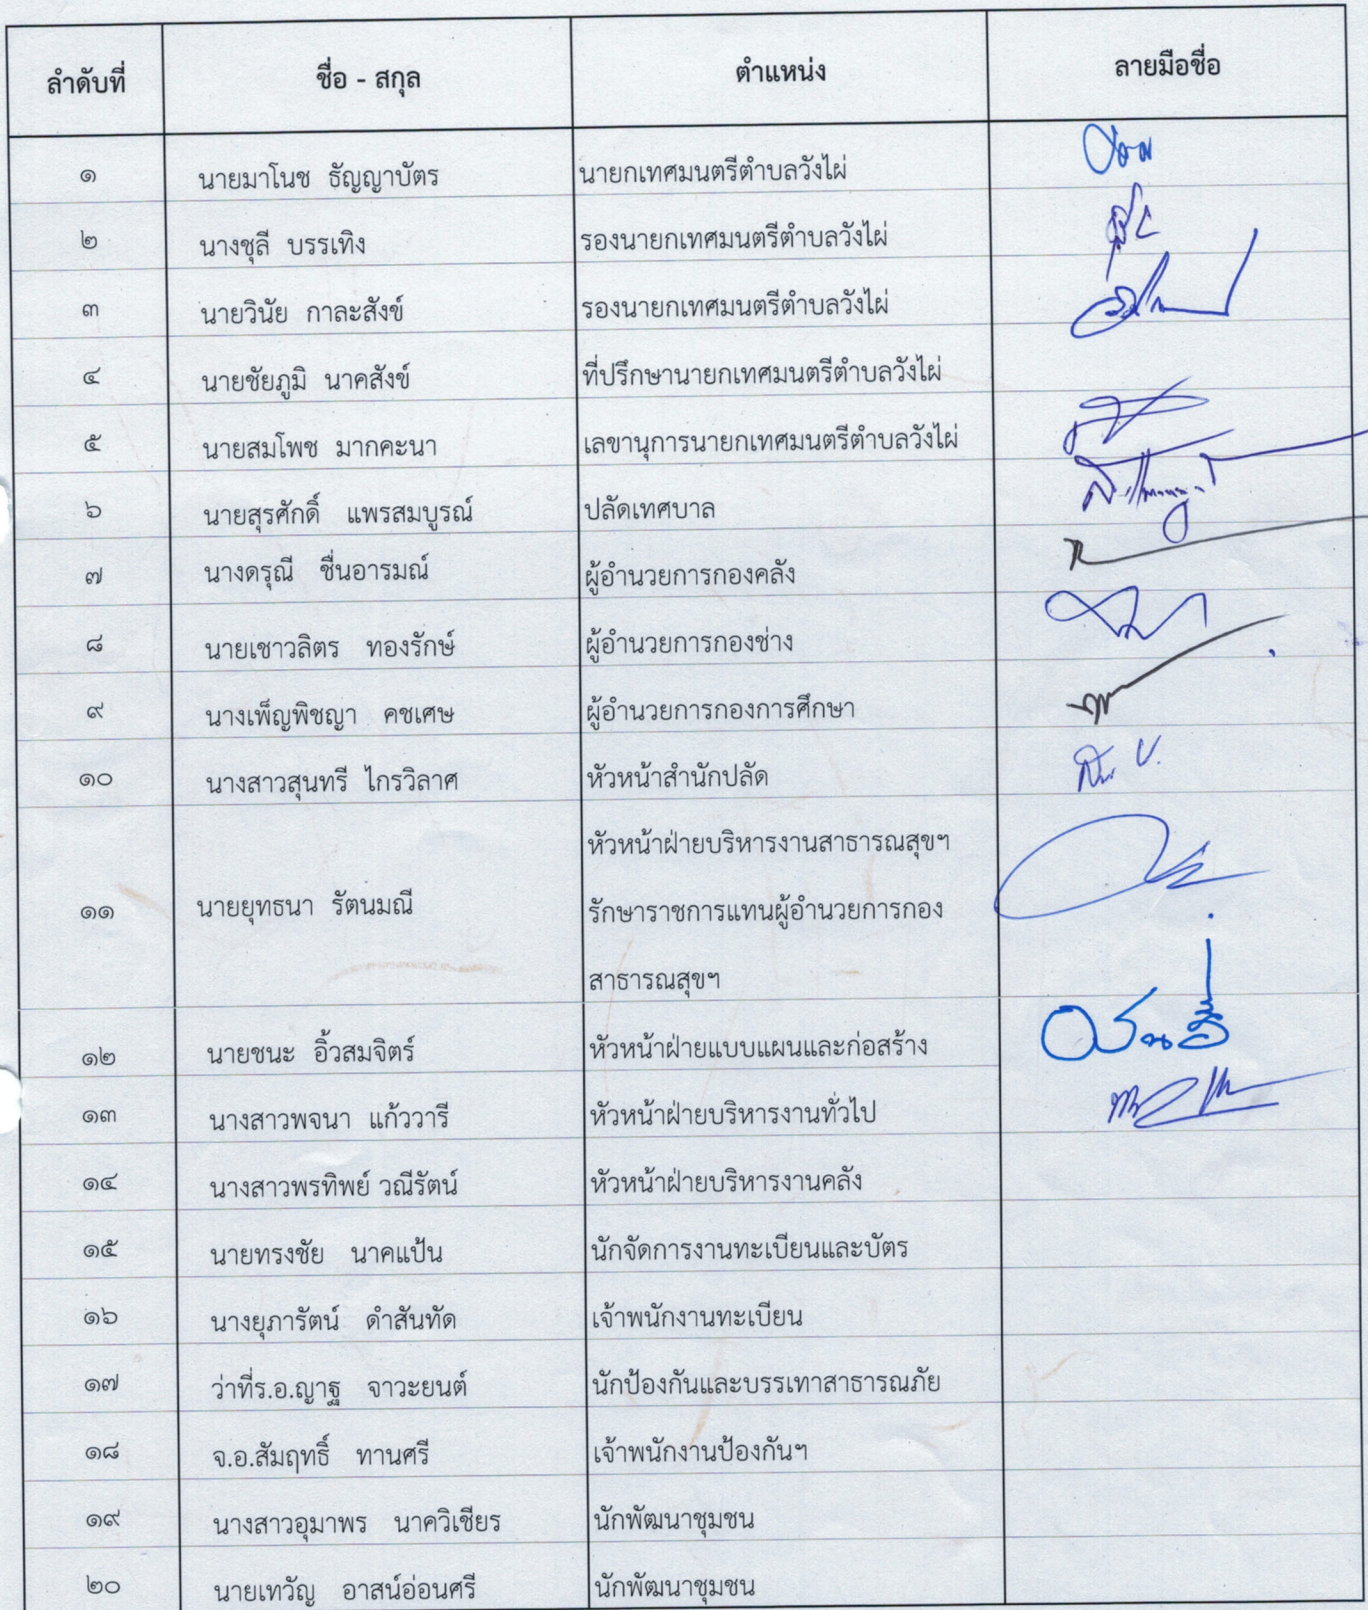 ลำดับที่ ชื่อ - สกุล ตำแหน่ง ลายมือชื่อ
๑ นายมาโนช ธัญญาบัตร นายกเทศมนตรีตำบลวังไผ่
๒ นางชุลี บรรเทิง รองนายกเทศมนตรีตำบลวังไผ่
๓ นายวินัย กาละสังข์ รองนายกเทศมนตรีตำบลวังไผ่
๔ นายชัยภูมิ นาคสังข์ ที่ปรึกษานายกเทศมนตรีตำบลวังไผ่
๕ นายสมโพช มากคะนา เลขานุการนายกเทศมนตรีตำบลวังไผ่
๖ นายสุรศักดิ์ แพรสมบูรณ์ ปลัดเทศบาล
๗ นางดรุณี ชื่นอารมณ์ ผู้อำนวยการกองคลัง
๘ นายเชาวลิตร ทองรักษ์ ผู้อำนวยการกองช่าง
๙ นางเพ็ญพิชญา คชเศษ ผู้อำนวยการกองการศึกษา
๑๐ นางสาวสุนทรี ไกรวิลาศ หัวหน้าสำนักปลัด
หัวหน้าฝ่ายบริหารงานสาธารณสุขฯ
๑๑ นายยุทธนา รัตนมณี รักษาราชการแทนผู้อำนวยการกอง
สาธารณสุขฯ
๑๒ นายชนะ อิ้วสมจิตร์ หัวหน้าฝ่ายแบบแผนและก่อสร้าง
๑๓ นางสาวพจนา แก้ววารี หัวหน้าฝ่ายบริหารงานทั่วไป
๑๔ นางสาวพรทิพย์ วณีรัตน์ หัวหน้าฝ่ายบริหารงานคลัง
๑๕ นายทรงชัย นาคแป้น นักจัดการงานทะเบียนและบัตร
๑๖ นางยุภารัตน์ ดำสันทัด เจ้าพนักงานทะเบียน
๑๗ ว่าที่ร.อ.ญาฐ จาวะยนต์ นักป้องกันและบรรเทาสาธารณภัย
๑๘ จ.อ.สัมฤทธิ์ ทานศรี เจ้าพนักงานป้องกันฯ
๑๙ นางสาวอุมาพร นาควิเชียร นักพัฒนาชุมชน
๒๐ นายเทวัญ อาสน์อ่อนศรี นักพัฒนาชุมชน